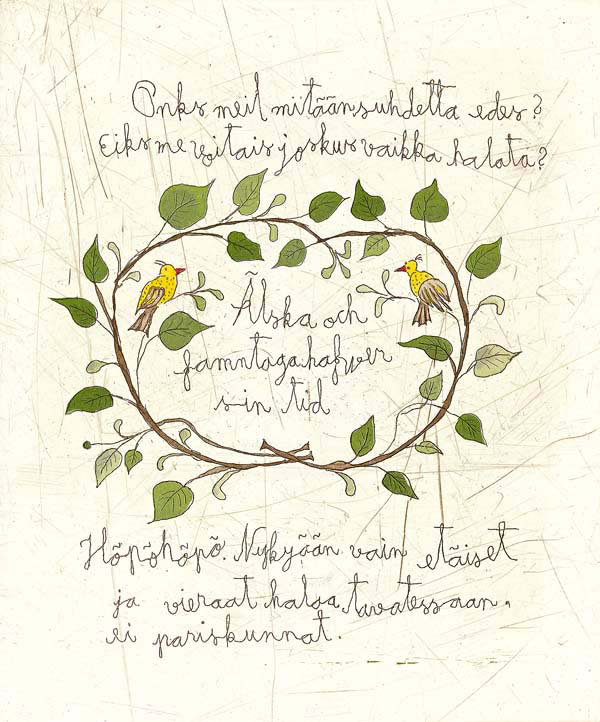 Onks meil mitään suhdetta edes?
Eiks me voitais joskus vaikka halata?
Älska och
famntaga hafwer
sin tid
Höpöhöpö. Nykyään vain etäiset
ja vieraat halaa tavatessaan.
ei pariskunnat.